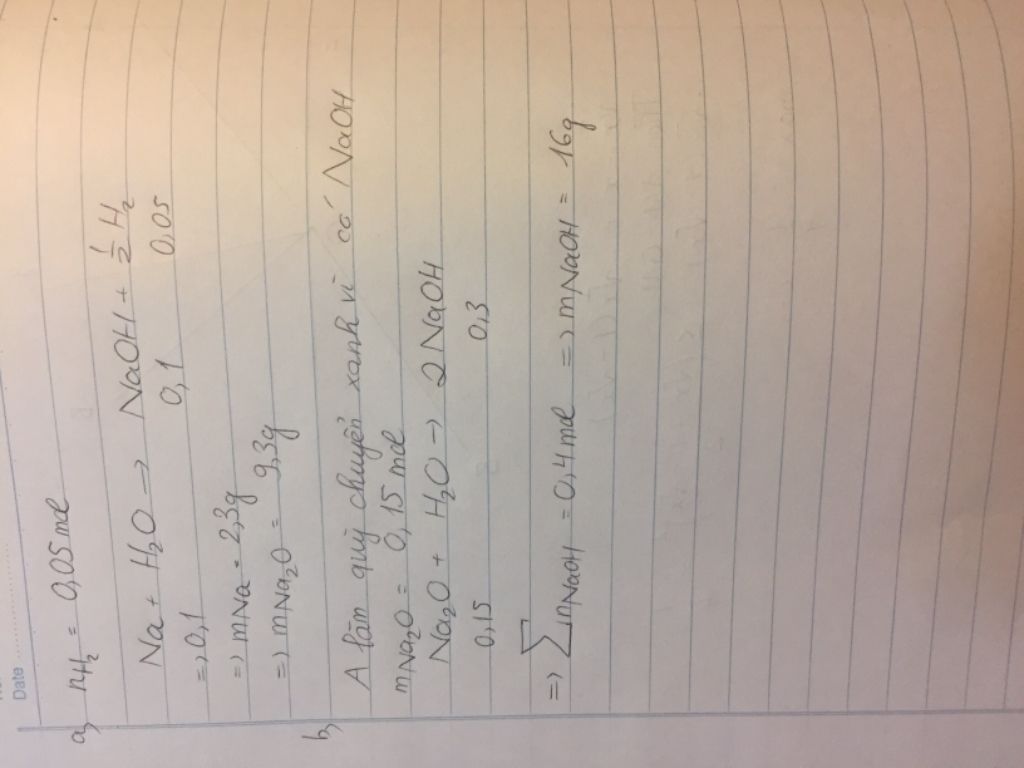 Date
a, nH₂ = 0,05 mol
Na + H₂O → NaOH + ½ H₂
=> 0,1 0,1 0,05
=> mNa = 2,3g
=> mNa₂O = 9,3g
b, A làm quỳ chuyển xanh vì có NaOH
mNa₂O = 0,15 mol
Na₂O + H₂O → 2 NaOH
0,15 0,3
=> ∑mNaOH = 0,4 mol => mNaOH = 16g